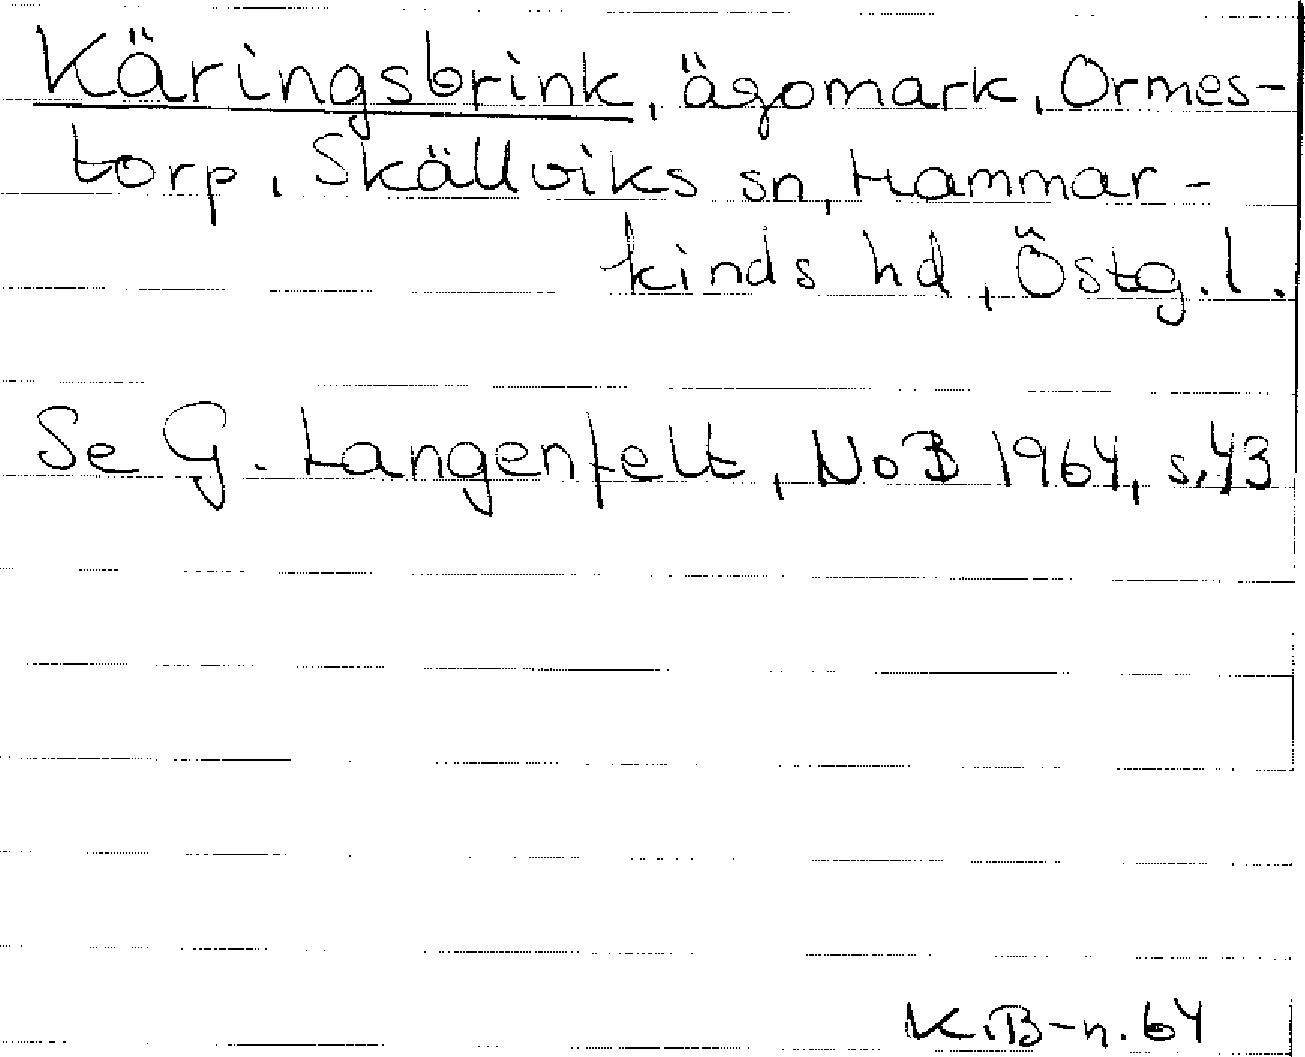 Käringsbrink, ägomark, Ormes-
torp, Skällviks sn, Hammar-
kinds hd, Östg.l.
Se G. Langenfelt, NoB 1964, s. 43
K.B-n. 64